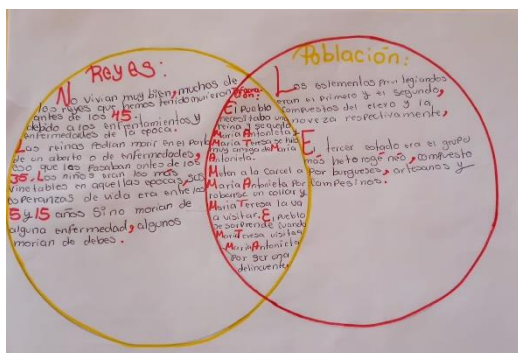 Reyes:
No vivian muy bien, muchos de
los reyes que hemos tenido murieron
antes de los 45.
debido a los enfrentamientos y
enfermedades de la epoca.
Las reinas podian morir en el parto
de un aborto o de enfermedades,
eso que los pasaban antes de los
35. Los niños eran los mas
vinetables en aquellas epocas, sus
esperanzas de vida era entre los
5 y 15 años si no morian de
alguna enfermedad, algunos
morian de debes.
El Pueblo
necesitaba una
reina y segundo
Maria Antonieta y
Maria Teresa se hizo
muy amiga de Maria
Antonieta.
Meten a la carcel a
Maria Antonieta por
robarse un collar y
Maria Teresa la va
a visitar. El pueblo
se sorprende cuando
Maria Teresa visita a
Maria Antonieta
Por ser una
delincuente.
Población:
Los eslementos privilegiandos
eran el primero y el segundo,
compuestos del clero y la
noveza respectivamente,
El tercer estado era el grupo
mas heterogenio, compuesto
por burgueses, artesanos y
campesinos.